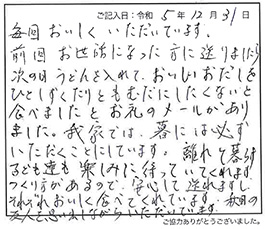 ご記入日：令和 5年 12月 31日
毎回おいしくいただいています。
前回お世話になった方に送りましたら
次の日うどんを入れて、おいしいおだしを
ひとしずくたりともむだにしたくないと
食べましたとお礼のメールがあり
ました。我家では、暮には必ず
いただくことにしています。離れて暮らす
子ども達も楽しみに待っていてくれます
つくり方があるので、安心して送れますし、
それぞれおいしく食べてくれています。秋田の
友人を思い出しながらいただいています。
ご協力ありがとうございました。